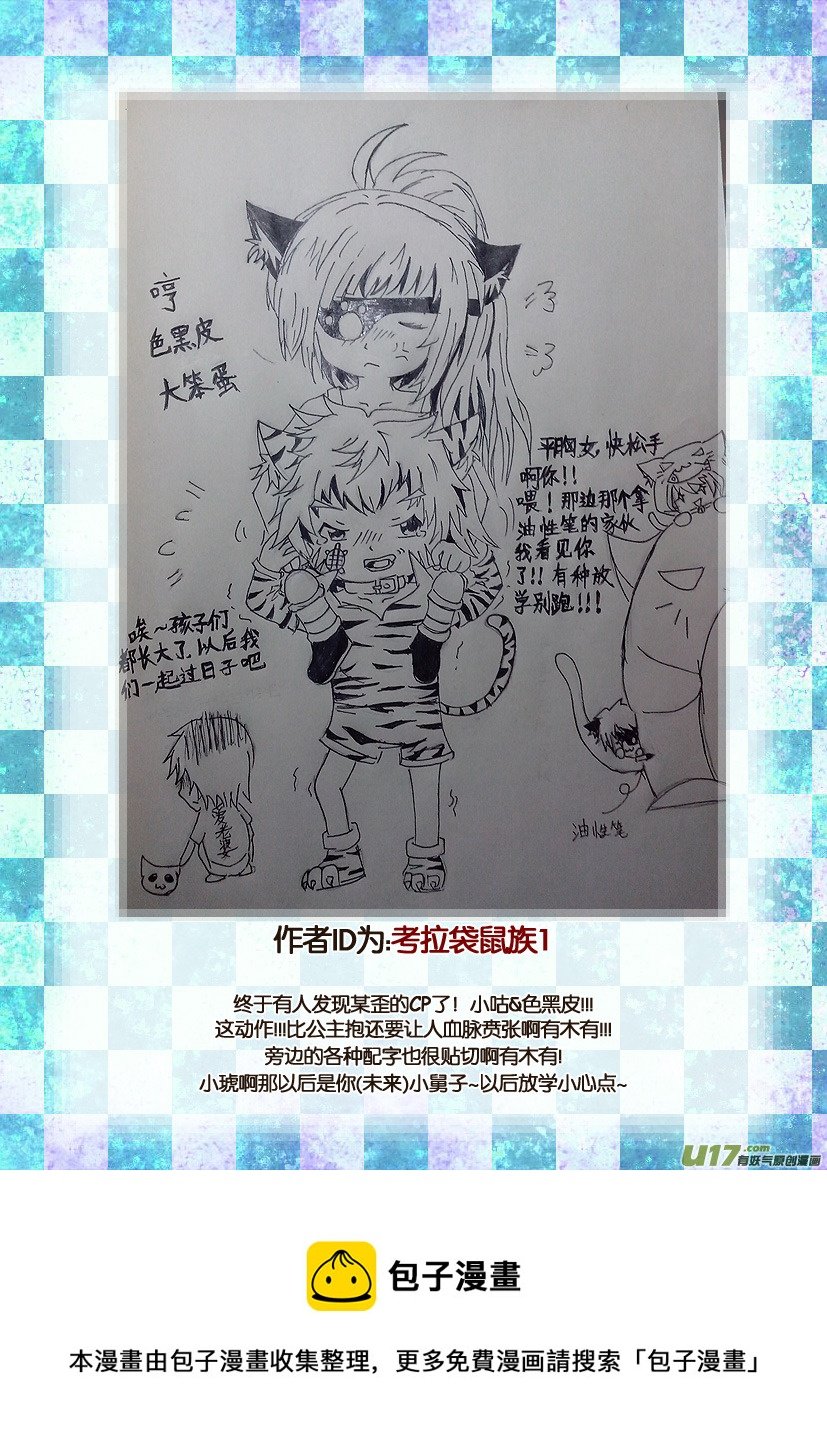 哼
色黑皮
大笨蛋
平胸女,快松手
啊你!!
喂!那边那个拿
油性笔的家伙
我看见你
了!!有种放
学别跑!!!
唉~孩子们
都长大了.以后我
们一起过日子吧
爱老婆
油性笔
作者ID为:考拉袋鼠族1
终于有人发现某歪的CP了!小咕&色黑皮!!!
这动作!!!比公主抱还要让人血脉贲张啊有木有!!!
旁边的各种配字也很贴切啊有木有!
小琥啊那以后是你(未来)小舅子~以后放学小心点~
U17.com
有妖气原创漫画
包子漫畫
本漫畫由包子漫畫收集整理,更多免費漫画請搜索「包子漫畫」